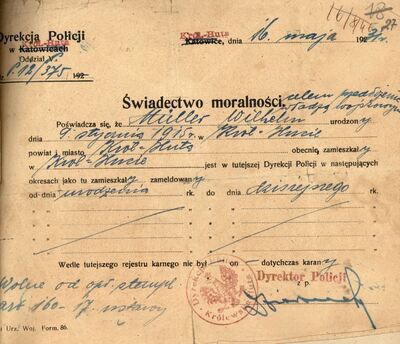 Dyrekcja Policji
w Katowicach
Król.-Huta
Oddział V.
192
Król.-Huta
Katowice, dnia 16. maja 192
27
Świadectwo moralności
celem przedłożenia
Poświadcza się, że Müller Wilhelm urodzony
dnia 9. stycznia 1905 r. w Król-Hucie
powiat i miasto Król-Huta obecnie, zamieszkały
w Król-Hucie jest w tutejszej Dyrekcji Policji w następujących
okresach jako tu zamieszkały zameldowany
od dnia urodzenia rk. do dnia dzisiejszego rk.
Wedle tutejszego rejestru karnego nie był on dotychczas karany
Wolne od opł. stempl.
art 160-17. ustawy
Dyrektor Policji
z p.
Urz. Woj. Form. 86.